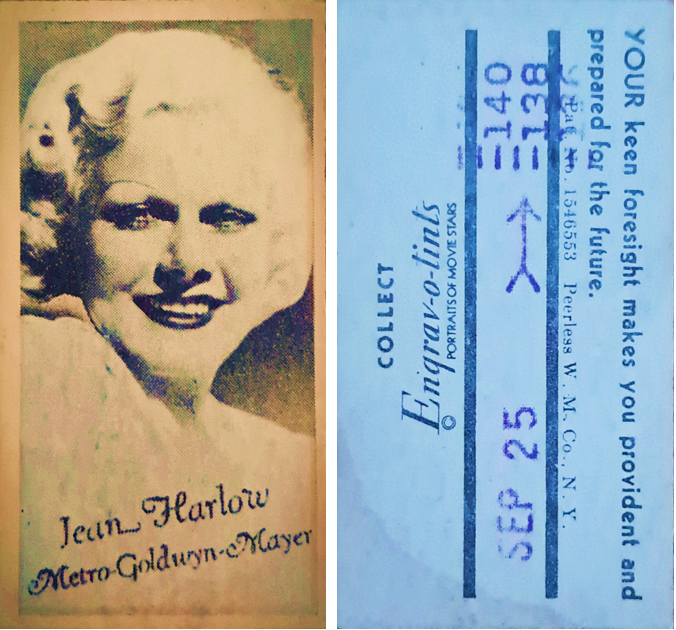 Jean Harlow
Metro-Goldwyn-Mayer
YOUR keen foresight makes you provident and
prepared for the future.
Pat. No. 1546553 Peerless W. M. Co., N. Y.
138
140
SEP 25
COLLECT
Engrav-o-tints
©
PORTRAITS OF MOVIE STARS